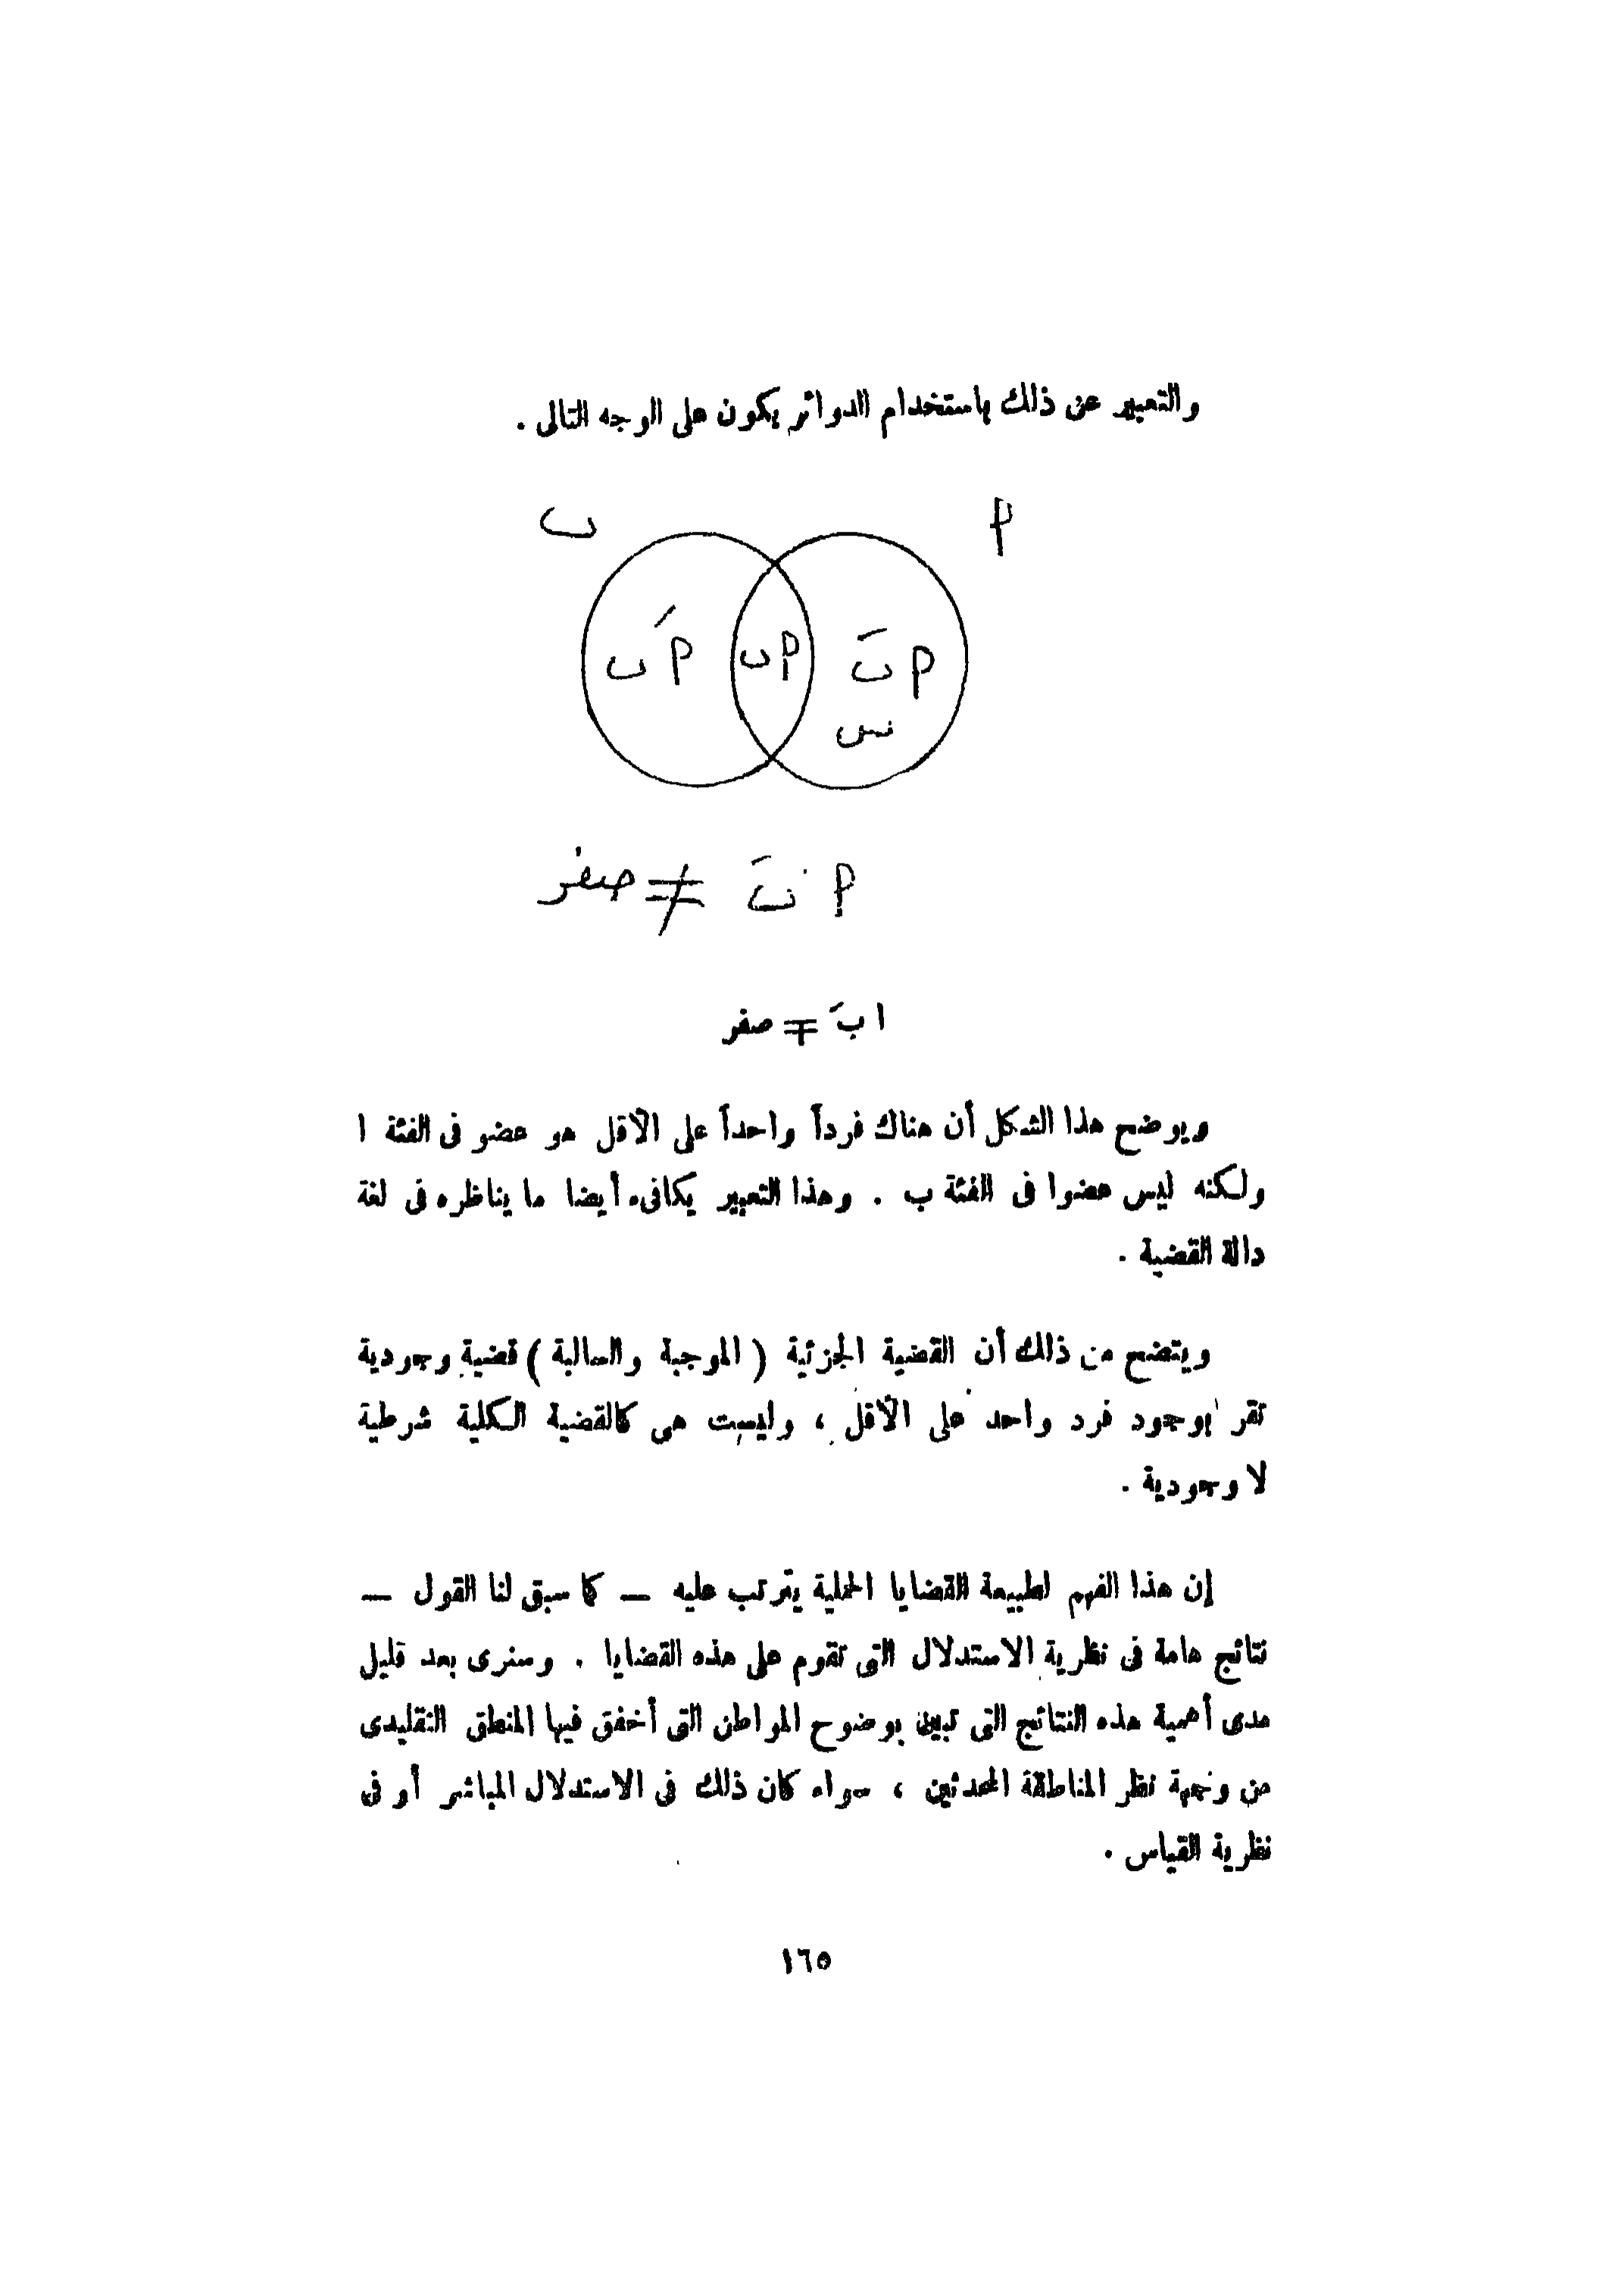 والتعبير عن ذلك باستخدام الدوائر يكون على الوجه التالى .
ب
أ
أَ ب
أ ب
أ بَ
س
أ بَ ≠ صفر
ا بَ ≠ صفر
ويوضح هذا الشكل أن هناك فرداً واحداً على الأقل هو عضو فى الفئة ا
ولكنه ليس عضوا فى الفئة ب . وهذا التعبير يكافىء أيضا ما يناظره فى لغة
دالة القضية .
ويتضح من ذلك أن القضية الجزئية ( الموجبة والسالبة ) قضية وجودية
تقر بوجود فرد واحد على الأقل ، وليست هى كالقضية الكلية شرطية
لا وجودية .
إن هذا الفهم لطبيعة القضايا الحملية يترتب عليه — كما سبق لنا القول —
نتائج هامة فى نظرية الاستدلال التى تقوم على هذه القضايا . وسنرى بعد قليل
مدى أهمية هذه النتائج التى تبين بوضوح المواطن التى أخفق فيها المنطق التقليدى
من وجهة نظر المناطقة المحدثين ، سواء كان ذلك فى الاستدلال المباشر أو فى
نظرية القياس .
١٦٥